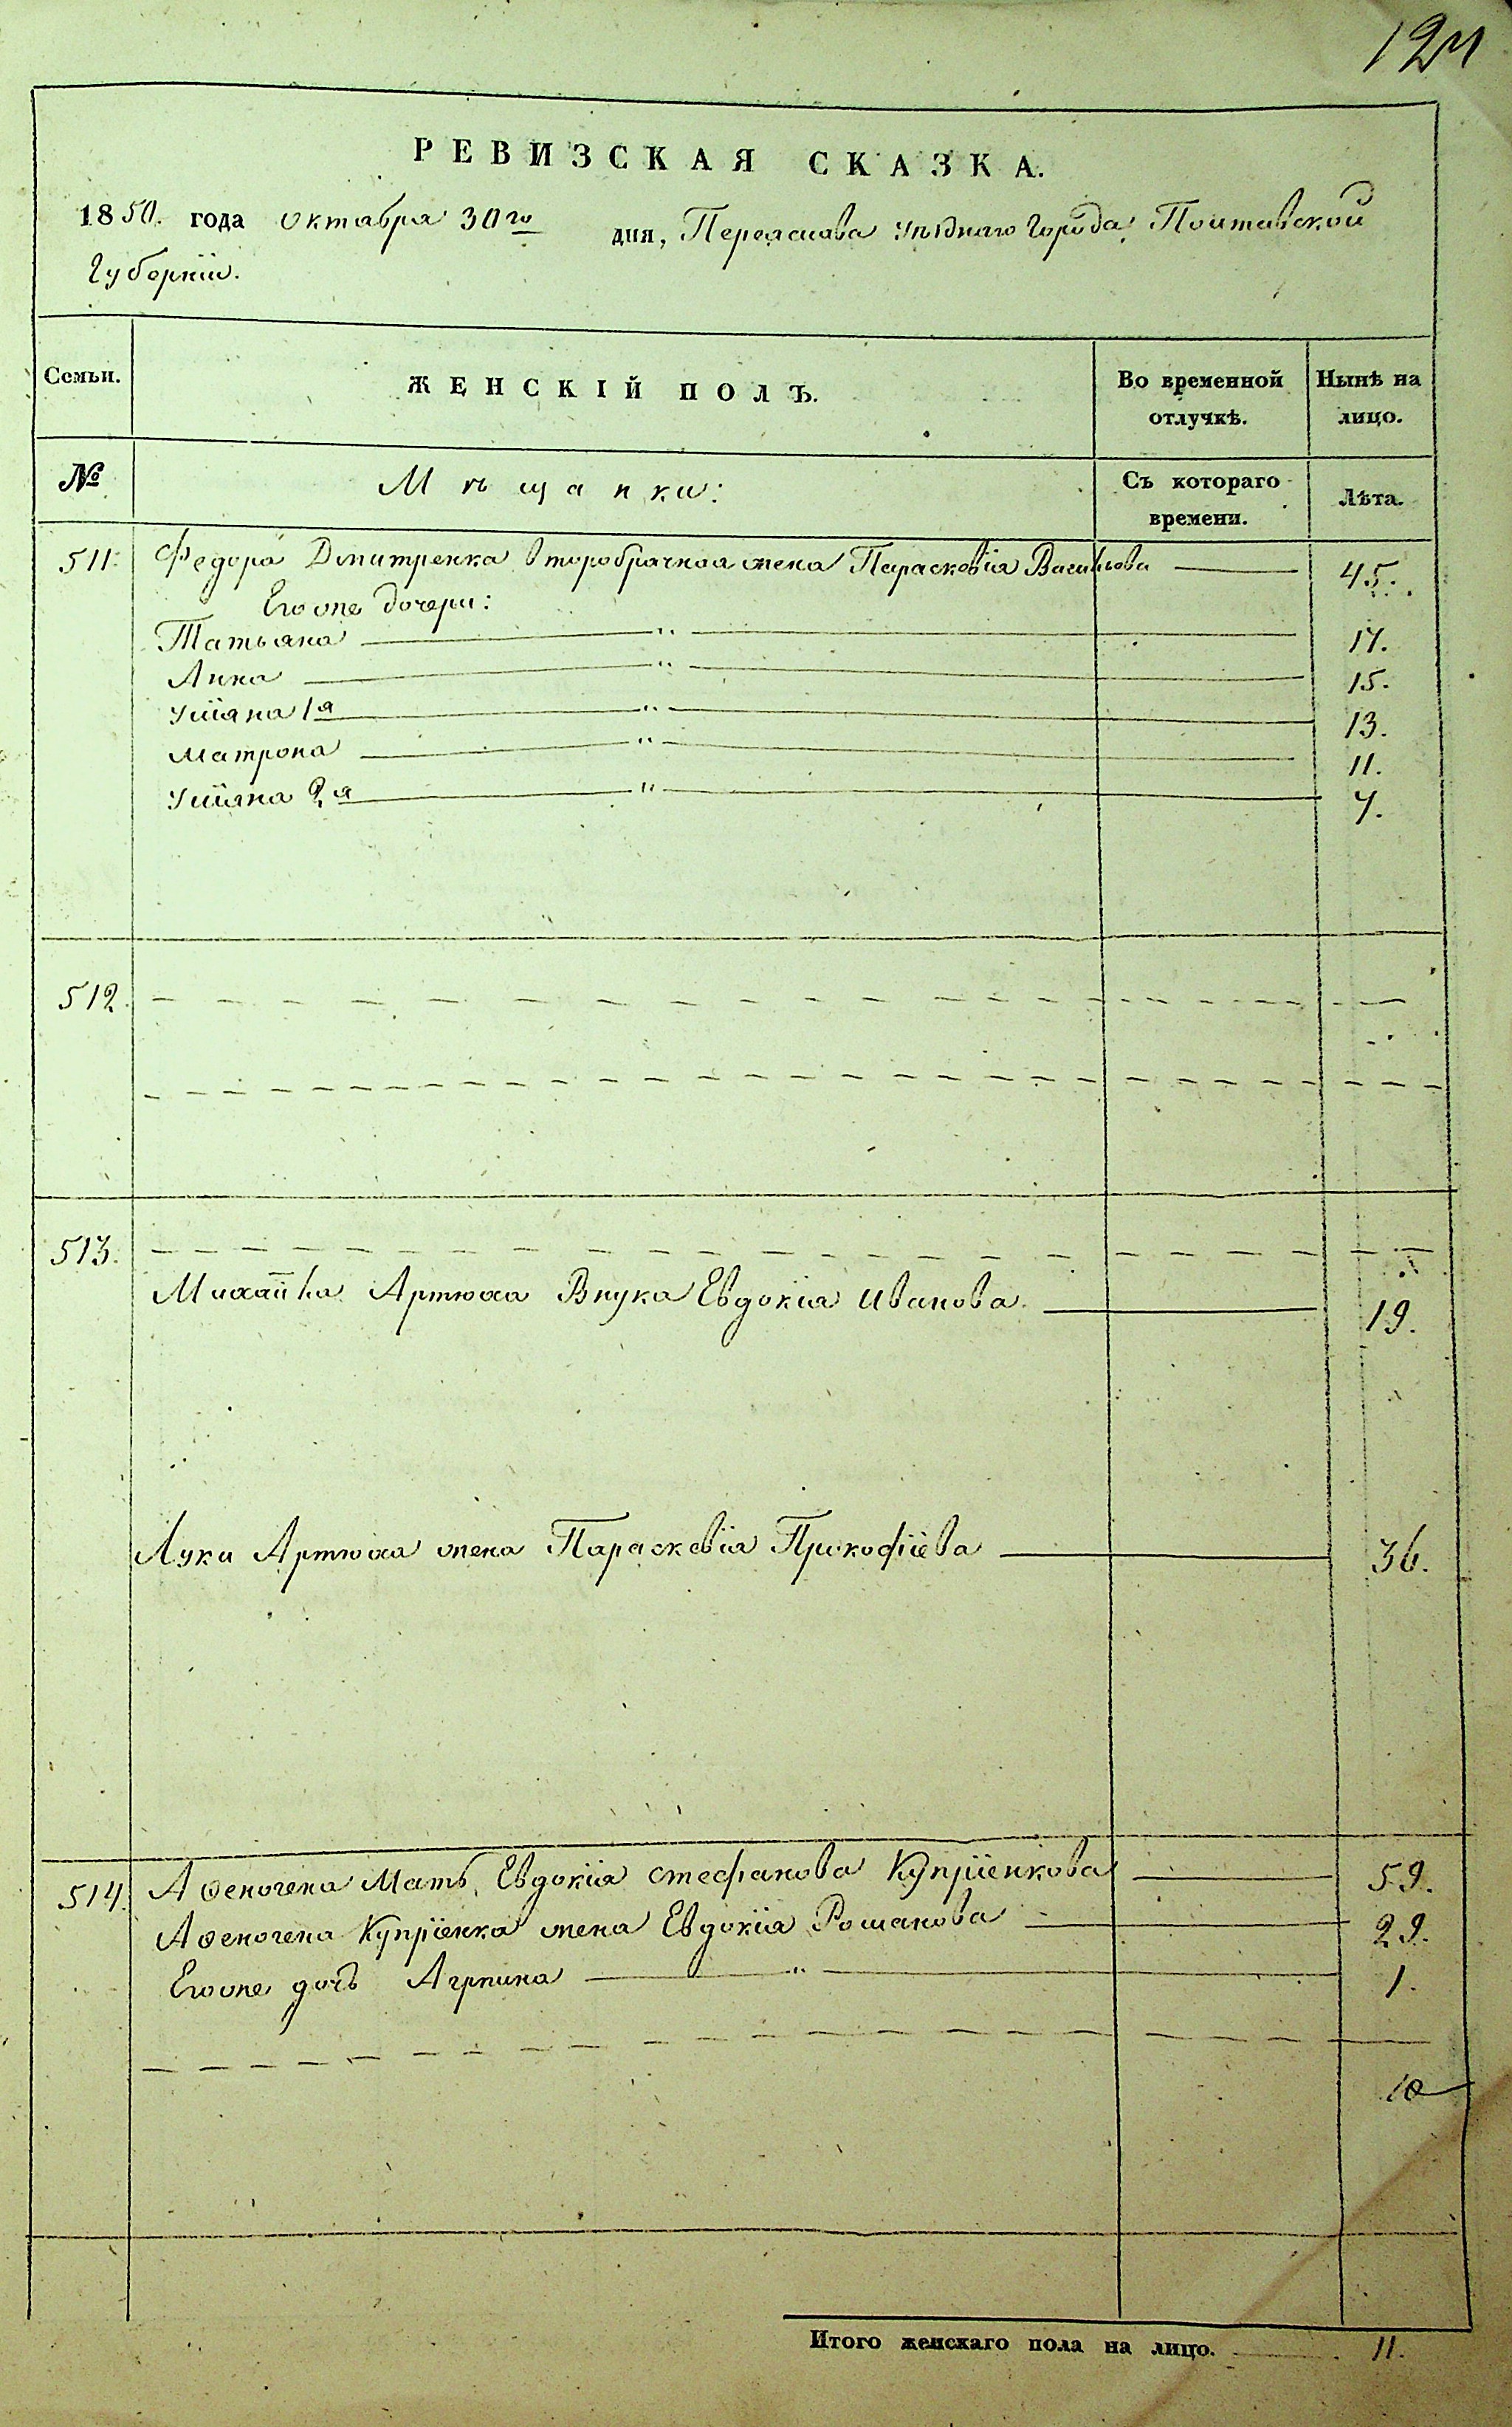 124
РЕВИЗСКАЯ СКАЗКА.
1850. года октября 30го дня, Переяслава уѣзднаго города, Полтавской
Губерніи.
Семьи. ЖЕНСКІЙ ПОЛЪ. Во временной отлучкѣ. Нынѣ на лицо.
№ Мѣщанки: Съ котораго времени. Лѣта.
511. Федора Дмитренка второбрачная жена Парасковія Васильева 45.
Его же дочери:
Татьяна " 17.
Анна " 15.
Уліяна 1я " 13.
Матрона " 11.
Уліяна 2я " 7.
512.
513.
Михайла Артюха Внука Евдокія Иванова 19.
Луки Артюха жена Парасковія Прокофіева 36.
514. Аѳеногена Мать Евдокія Стефанова Купріенкова 59.
Аѳеногена Купріенка жена Евдокія Романова 29.
Его же дочь Агрпина " 1.
10
Итого женскаго пола на лицо. 11.